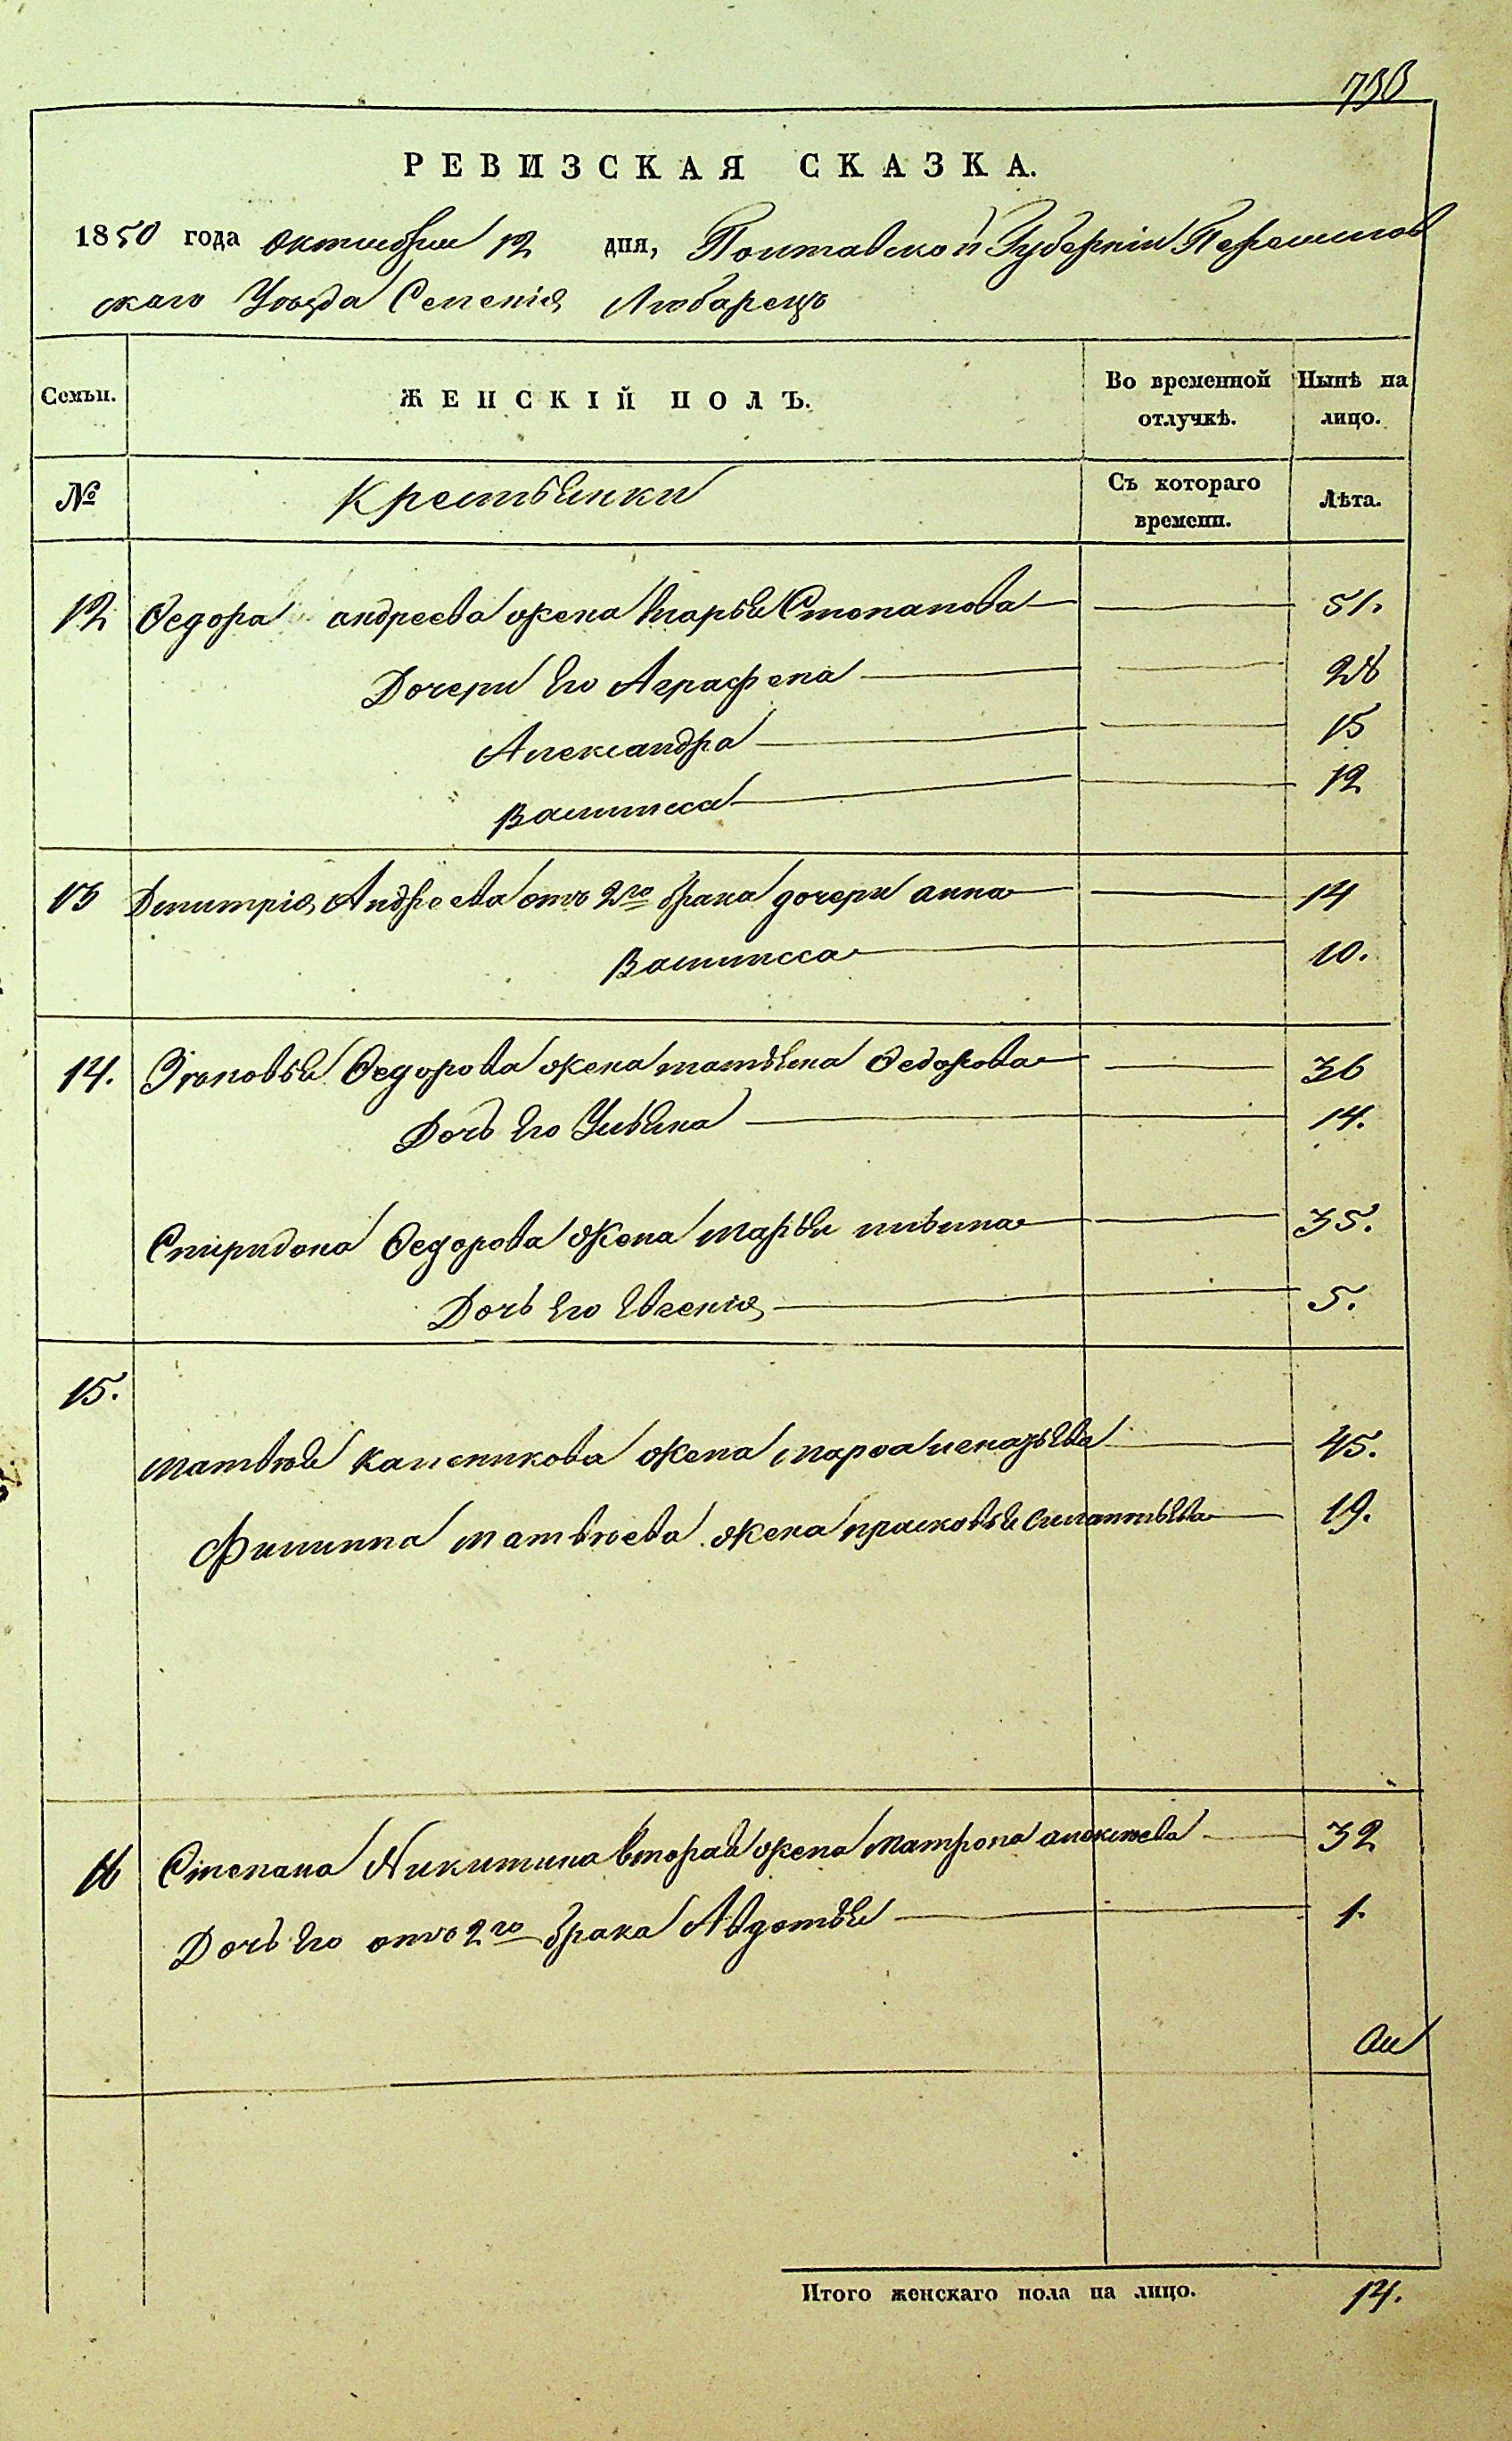 733
РЕВИЗСКАЯ СКАЗКА.
1850 года октября 12 дня, Полтавской Губерніи Переяслов
скаго Уѣзда Селенія Любарецъ
Семьи. ЖЕНСКІЙ ПОЛЪ. Во временной отлучкѣ. Нынѣ на лицо.
№ Крестьянки Съ котораго времени. Лѣта.
12 Ѳедора андреева жена Марья Степанова 51.
Дочери Его Аграфена 28
Александра 15
Василисса 12
13 Дмитрія Андреева отъ 2го брака дочери анна 14
Василисса 10.
14. Зѣновья Ѳедорова жена татьяна Ѳедорова 36
Дочь Его Ульяна 14.
Спиридона Ѳедорова жена марья 35.
Дочь Его Евгенія 5.
15.
матвѣя калѣникова жена марѳа 45.
Филиппа матвѣева жена прасковья Силантьева 19.
16 Степана Никитина вторая жена матрона алексѣева 32
Дочь Его отъ 2го брака Авдотья 1.
Итого женскаго пола на лицо. 14.